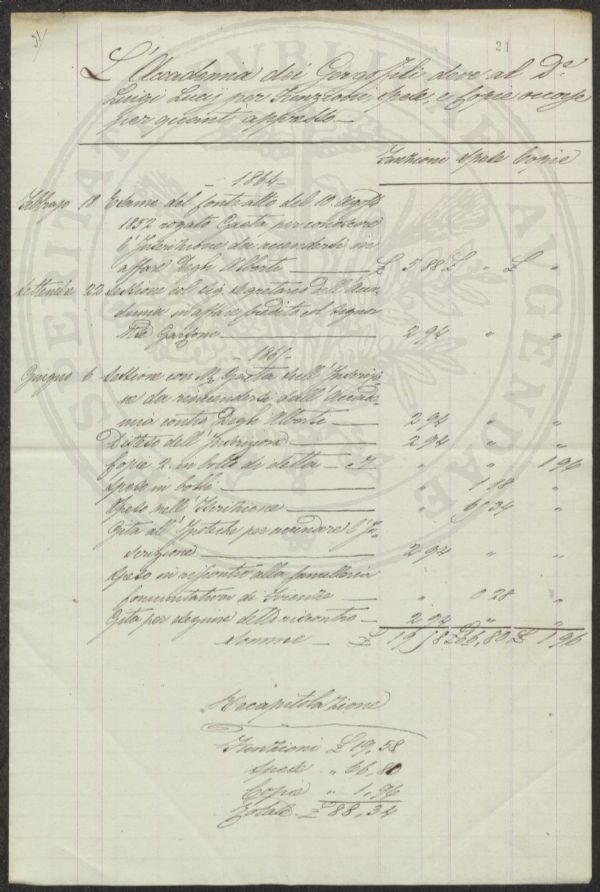 31/
21
L'Accademia dei Georgofili deve al Dr.
Luigi Lucij per Funzioni, Spese, e Copie occorse
per quanto appresso —
Funzioni Spese Copie
- 1864 -
Febbrajo 18 Esame del contratto del 19 Agosto
1852 rogato Gaeta per conoscere
l'Inscrizione da accendersi in
affare Degli Alberti — £ 5 88 £ " £ "
Settembre 22 Sessione col Sig. Segretario dell'Acca-
demia in affare suddetto col Signor
Garzone — 2 94 " "
- 186
Giugno 6 Sessione con Mr. Gaeta sull'Inscrizio-
ne da accendersi dall'Accade-
mia contro Degli Alberti — 2 94 " "
Disteso dell'Inscrizione — 2 94 " "
Copie 2 in bollo di detta — " " 1 96
Spese in bolli — " 1 18 "
Spese nell'Iscrizione — " 65 34 "
Gita all'Ipoteche per accendere l'In-
scrizione — 2 94 " "
Speso in riscontro alla Cancelleria
Comunitativa di Firenze — " 0 28 "
Gita per eseguire detto riscontro — 2 94 " "
Somme — £ 19 58 £ 66,80 £ 1 96
Recapitolazione
Funzioni £ 19,58
Spese " 66,80
Copie " 1,96
Totale £ 88,34
PVBLICAE AVGENDAE